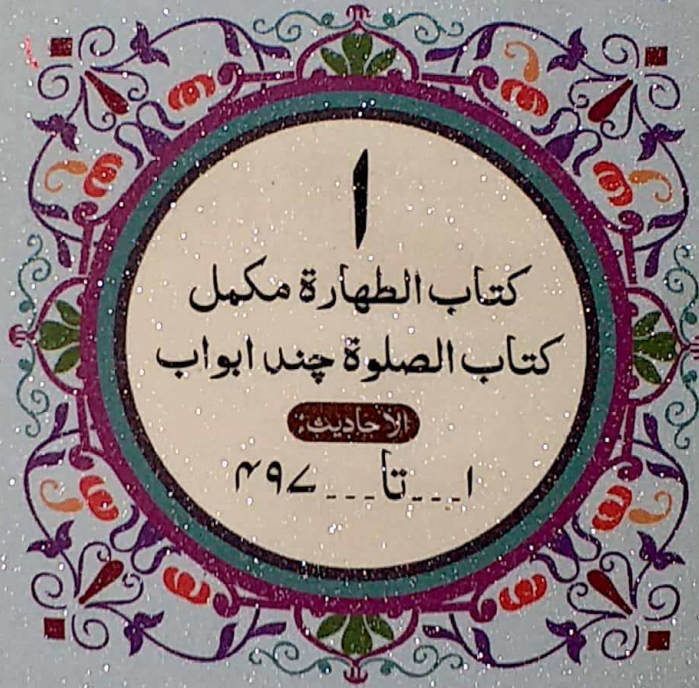 ۱
کتاب الطهارة مکمل
کتاب الصلوة چند ابواب
الاحادیث:
۱---تا---۴۹۷